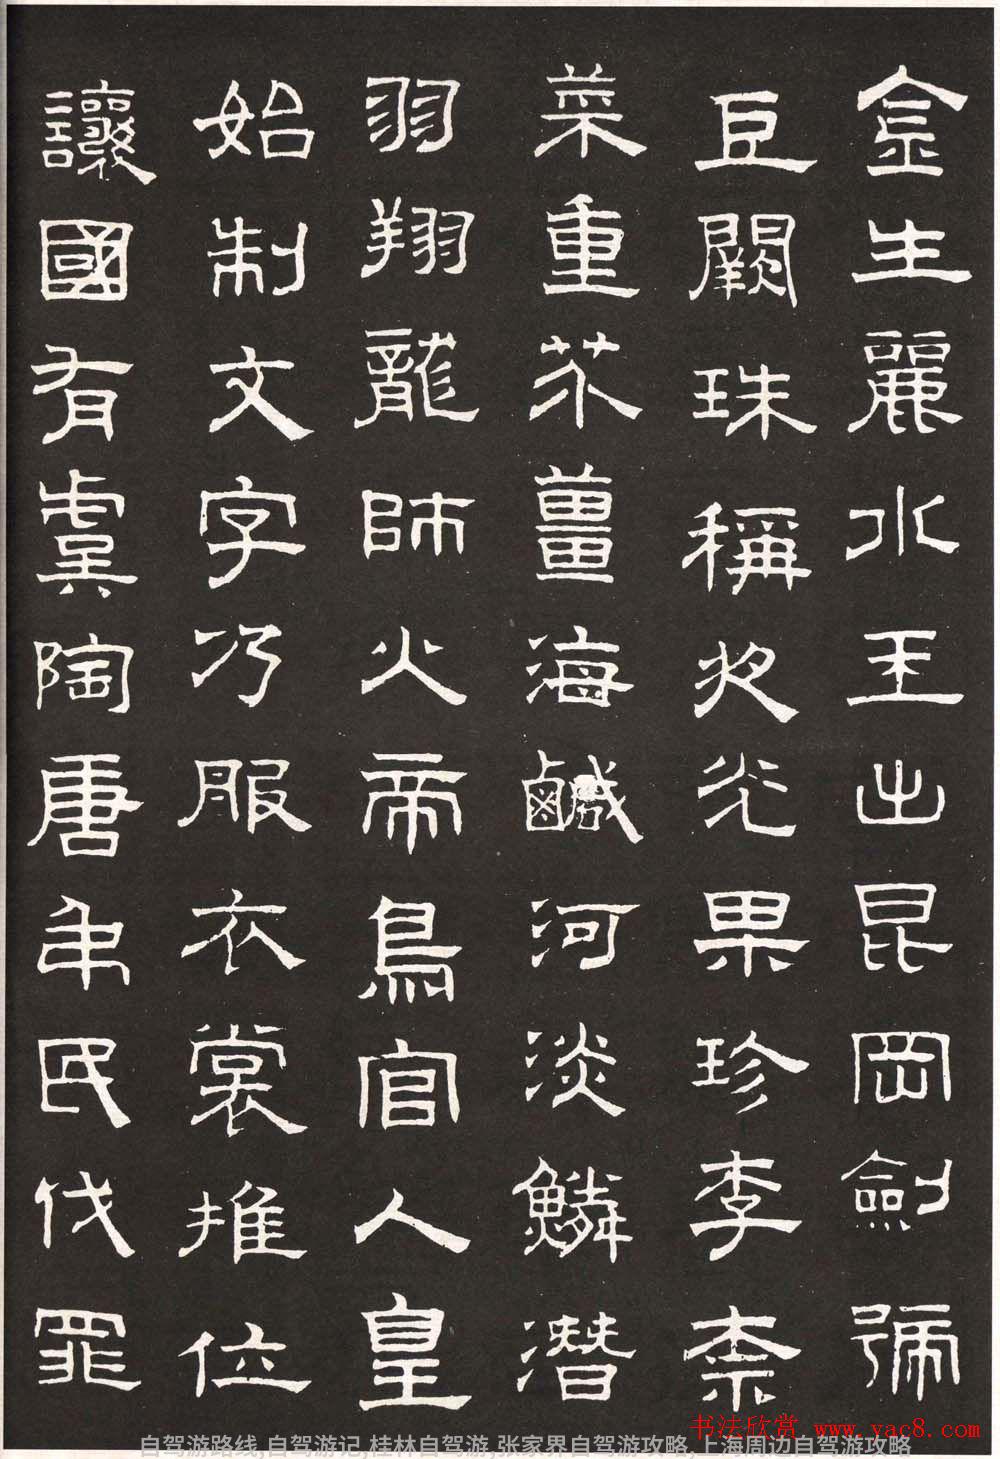 金生麗水玉出昆岡劍號
巨闕珠稱夜光果珍李柰
菜重芥薑海鹹河淡鱗潛
羽翔龍師火帝鳥官人皇
始制文字乃服衣裳推位
讓國有虞陶唐弔民伐罪
书法欣赏 www.yac8.com
自驾游路线,自驾游记,桂林自驾游,张家界自驾游攻略,上海周边自驾游攻略